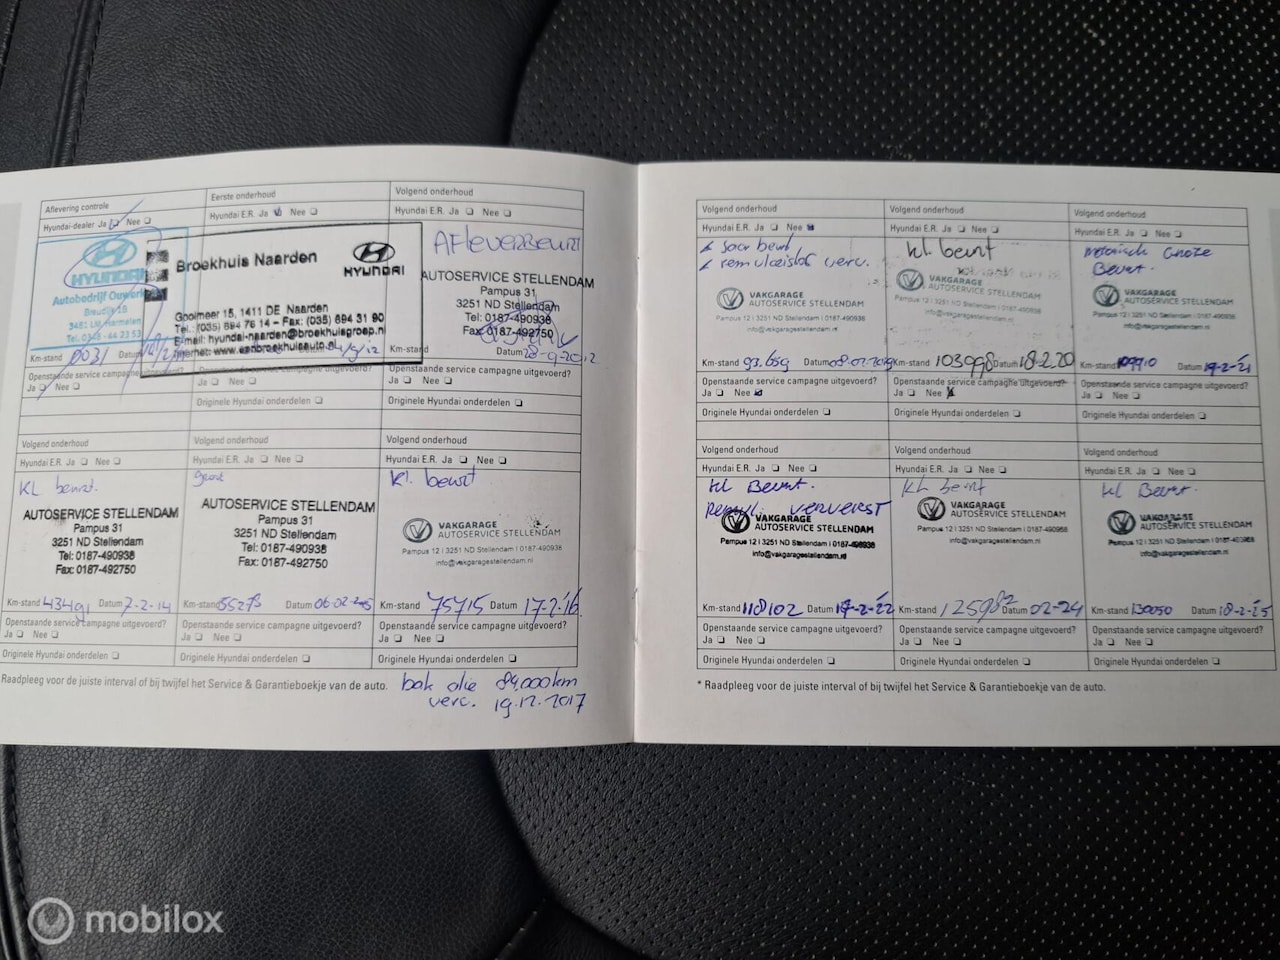 Aflevering controle
Hyundai-dealer Ja Nee
HYUNDAI
Autobedrijf Ouwerk
Breudijk 18
3481 LM Harmelen
Km-stand 0031 Datum
Openstaande service campagne uitgevoerd?
Ja Nee
Eerste onderhoud
Hyundai E.R. Ja Nee
Broekhuis Naarden
HYUNDAI
Gooimeer 15, 1411 DE Naarden
Tel.: (035) 694 76 14 - Fax: (035) 694 31 90
E-mail: hyundai-naarden@broekhuisgroep.nl
Internet: www.vanbroekhuisauto.nl
Openstaande service campagne uitgevoerd?
Ja Nee
Originele Hyundai onderdelen
Volgend onderhoud
Hyundai E.R. Ja Nee
Afleverbeurt
AUTOSERVICE STELLENDAM
Pampus 31
3251 ND Stellendam
Tel: 0187-490938
Fax: 0187-492750
Km-stand Datum 28-9-2012
Openstaande service campagne uitgevoerd?
Ja Nee
Originele Hyundai onderdelen
Volgend onderhoud
Hyundai E.R. Ja Nee
KL beurt.
AUTOSERVICE STELLENDAM
Pampus 31
3251 ND Stellendam
Tel: 0187-490938
Fax: 0187-492750
Km-stand 43491 Datum 7-2-14
Openstaande service campagne uitgevoerd?
Ja Nee
Originele Hyundai onderdelen
Volgend onderhoud
Hyundai E.R. Ja Nee
AUTOSERVICE STELLENDAM
Pampus 31
3251 ND Stellendam
Tel: 0187-490938
Fax: 0187-492750
Km-stand Datum
Openstaande service campagne uitgevoerd?
Ja Nee
Originele Hyundai onderdelen
Volgend onderhoud
Hyundai E.R. Ja Nee
Kl. beurt
VAKGARAGE
AUTOSERVICE STELLENDAM
Pampus 12 | 3251 ND Stellendam | 0187-490938
info@vakgaragestellendam.nl
Km-stand 75715 Datum 17-2-'16
Openstaande service campagne uitgevoerd?
Ja Nee
Originele Hyundai onderdelen
Raadpleeg voor de juiste interval of bij twijfel het Service & Garantieboekje van de auto.
bak olie 84,000km
verc. 19.12.2017
Volgend onderhoud
Hyundai E.R. Ja Nee
remvloeistof verv.
VAKGARAGE
AUTOSERVICE STELLENDAM
Pampus 12 | 3251 ND Stellendam | 0187-490938
info@vakgaragestellendam.nl
Km-stand 93.659 Datum 08-02-2019
Openstaande service campagne uitgevoerd?
Ja Nee
Originele Hyundai onderdelen
Volgend onderhoud
Hyundai E.R. Ja Nee
kl beurt
VAKGARAGE
AUTOSERVICE STELLENDAM
Pampus 12 | 3251 ND Stellendam | 0187-490938
info@vakgaragestellendam.nl
Km-stand 103998 Datum 18-2-20
Openstaande service campagne uitgevoerd?
Ja Nee
Originele Hyundai onderdelen
Volgend onderhoud
Hyundai E.R. Ja Nee
Beurt.
VAKGARAGE
AUTOSERVICE STELLENDAM
Pampus 12 | 3251 ND Stellendam | 0187-490938
info@vakgaragestellendam.nl
Km-stand Datum 19-2-'21
Openstaande service campagne uitgevoerd?
Ja Nee
Originele Hyundai onderdelen
Volgend onderhoud
Hyundai E.R. Ja Nee
Kl Beurt.
Remvl. ververst
VAKGARAGE
AUTOSERVICE STELLENDAM
Pampus 12 | 3251 ND Stellendam | 0187-490938
info@vakgaragestellendam.nl
Km-stand 118102 Datum 17-2-'22
Openstaande service campagne uitgevoerd?
Ja Nee
Originele Hyundai onderdelen
Volgend onderhoud
Hyundai E.R. Ja Nee
KL beurt
VAKGARAGE
AUTOSERVICE STELLENDAM
Pampus 12 | 3251 ND Stellendam | 0187-490938
info@vakgaragestellendam.nl
Km-stand Datum 02-24
Openstaande service campagne uitgevoerd?
Ja Nee
Originele Hyundai onderdelen
Volgend onderhoud
Hyundai E.R. Ja Nee
kl Beurt.
VAKGARAGE
AUTOSERVICE STELLENDAM
Pampus 12 | 3251 ND Stellendam | 0187-490938
info@vakgaragestellendam.nl
Km-stand 130050 Datum 18-2-'25
Openstaande service campagne uitgevoerd?
Ja Nee
Originele Hyundai onderdelen
* Raadpleeg voor de juiste interval of bij twijfel het Service & Garantieboekje van de auto.
mobilox